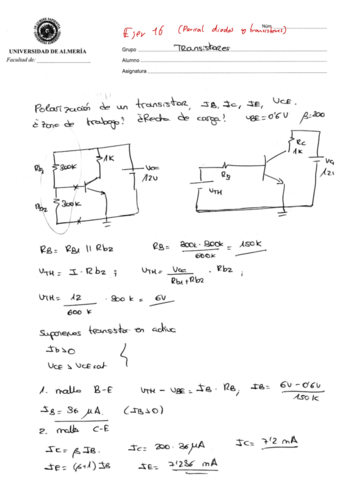 Ejer 16 (Parcial diodos y transistores)
Núm.
UNIVERSIDAD DE ALMERÍA
Grupo Transistores
Facultad de:
Alumno
Asignatura
Polarización de un transistor, IB, IC, IE, VCE.
¿Zona de trabajo? ¿Recta de carga? VBE = 0'6V β=200
RB1 300k
1K
Vcc
12V
RB2 300k
RB
VTH
Rc
1K
RB = RB1 || RB2 RB = 300k · 300k / 600k = 150k
VTH = I · Rb2 ; VTH = Vcc / Rb1+Rb2 · Rb2 ;
VTH = 12 / 600 k · 300 k = 6V
Suponemos transistor en activa
Ib>0
VCE > VCEsat
1. malla B-E VTH - VBE = IB · RB, IB = 6V - 0'6V / 150K
IB = 36 μA. (IB>0)
2. malla C-E
IC = β IB. IC = 200 · 36μA IC = 7'2 mA
IE = (β+1) IB IE = 7'236 mA